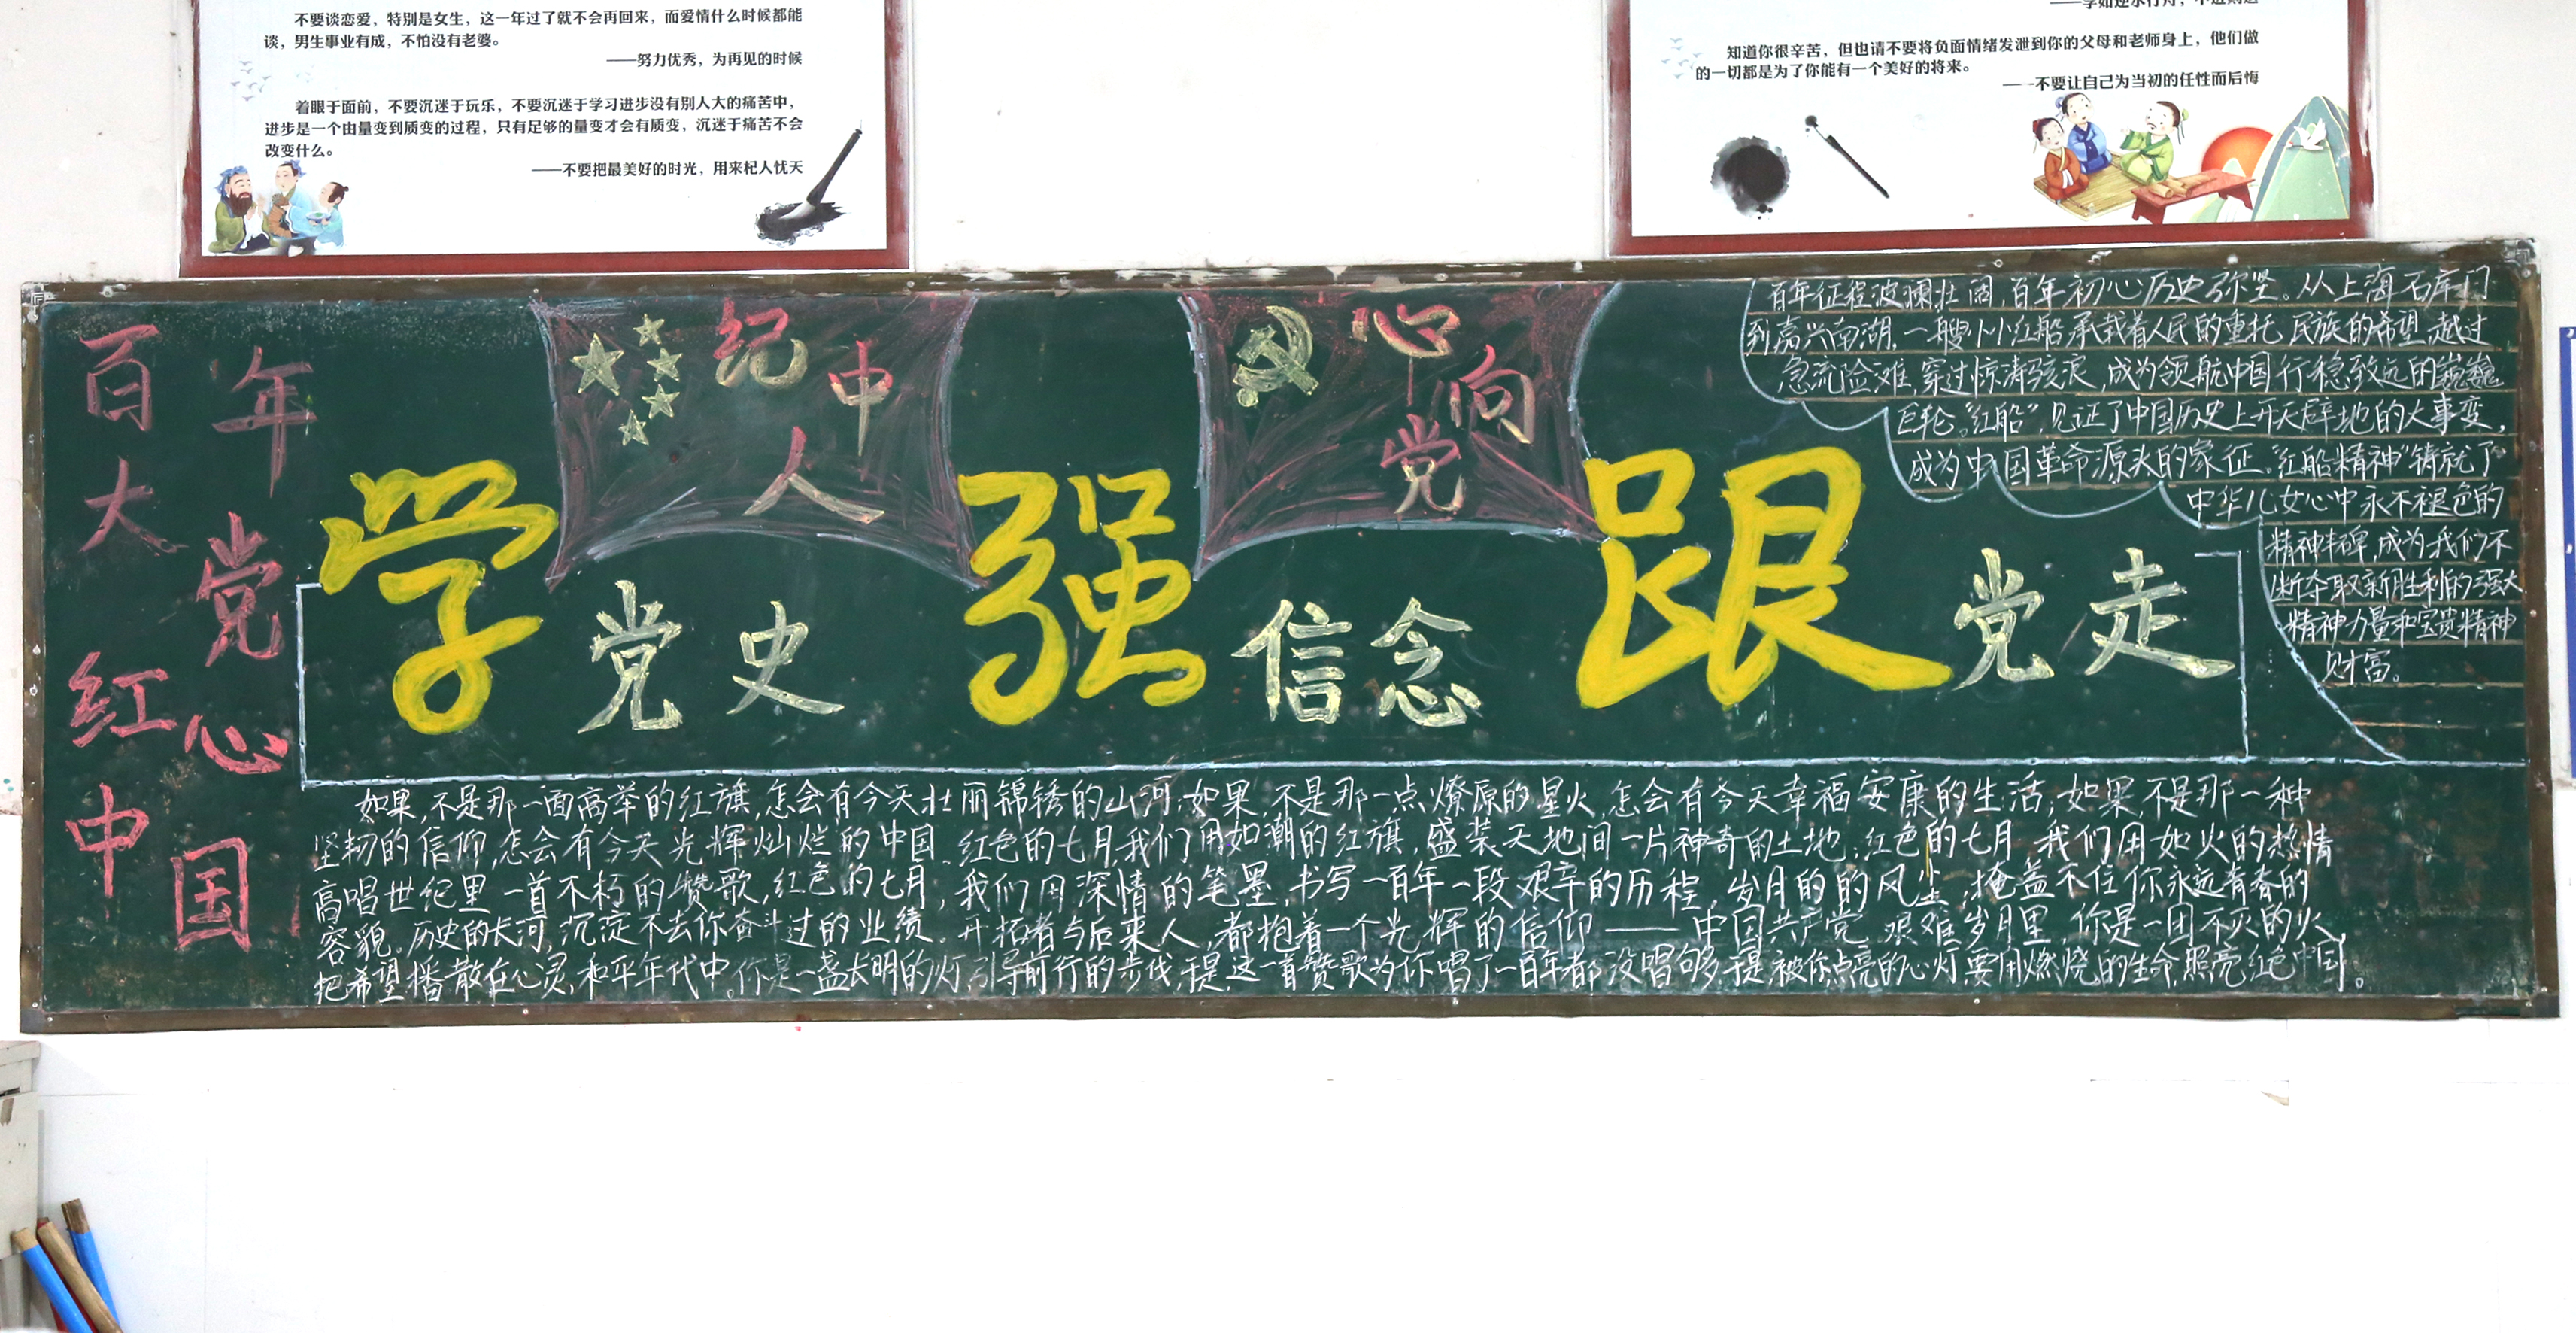 不要谈恋爱，特别是女生，这一年过了就不会再回来，而爱情什么时候都能
谈，男生事业有成，不怕没有老婆。
——努力优秀，为再见的时候
着眼于面前，不要沉迷于玩乐，不要沉迷于学习进步没有别人大的痛苦中，
进步是一个由量变到质变的过程，只有足够的量变才会有质变，沉迷于痛苦不会
改变什么。
——不要把最美好的时光，用来杞人忧天
——学如逆水行舟，不进则退
知道你很辛苦，但也请不要将负面情绪发泄到你的父母和老师身上，他们做
的一切都是为了你能有一个美好的将来。
——不要让自己为当初的任性而后悔
百年
大党
红心
中国
纪中人
心向党
学党史 强信念 跟党走
百年征程波澜壮阔，百年初心历史弥坚。从上海石库门
到嘉兴南湖，一艘小小红船承载着人民的重托、民族的希望，越过
急流险滩，穿过惊涛骇浪，成为领航中国行稳致远的巍巍
巨轮。“红船”，见证了中国历史上开天辟地的大事变，
成为中国革命源头的象征。“红船精神”铸就了
中华儿女心中永不褪色的
精神丰碑，成为我们不
断夺取新胜利的强大
精神力量和宝贵精神
财富。
如果，不是那一面高举的红旗，怎会有今天壮丽锦锈的山河；如果，不是那一点燎原的星火，怎会有今天幸福安康的生活；如果，不是那一种
坚韧的信仰，怎会有今天光辉灿烂的中国。红色的七月，我们用如潮的红旗，盛装天地间一片神奇的土地；红色的七月，我们用如火的热情
高唱世纪里一首不朽的赞歌，红色的七月，我们用深情的笔墨，书写一百年一段艰辛的历程，岁月的的风尘，掩盖不住你永远青春的
容貌。历史的长河，沉淀不去你奋斗过的业绩。开拓者与后来人，都抱着一个光辉的信仰——中国共产党。艰难岁月里，你是一团不灭的火，
把希望播散在心灵，和平年代中，你是一盏太明的灯，引导前行的步伐，于是，这一首赞歌为你唱了一百年都没唱够，于是，被你点亮的心灯，要用燃烧的生命，照亮红色中国。